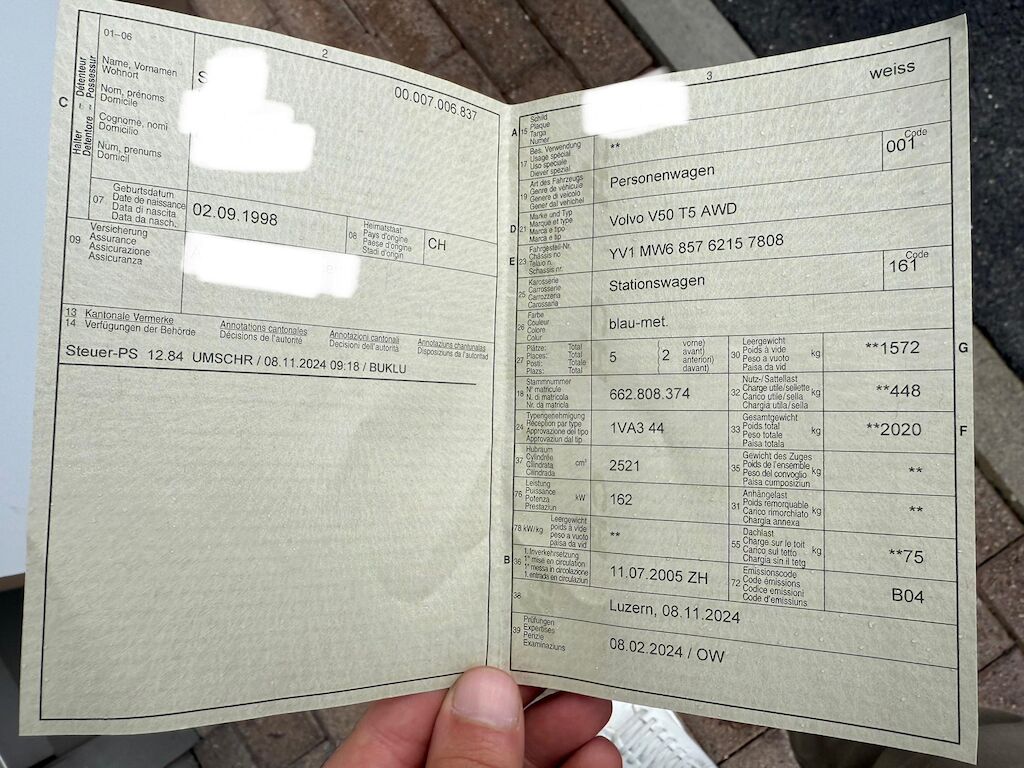 2
01–06
C
Halter Détenteur
Detentore Possessur
Name, Vornamen
Wohnort
Nom, prénoms
Domicile
Cognome, nomi
Domicilio
Num, prenums
Domicil
S
00.007.006.837
07
Geburtsdatum
Date de naissance
Data di nascita
Data da nasch.
02.09.1998
08
Heimatstaat
Pays d'origine
Paese d'origine
Stadi d'origin
CH
09
Versicherung
Assurance
Assicurazione
Assicuranza
13 Kantonale Vermerke
14 Verfügungen der Behörde
Annotations cantonales
Décisions de l'autorité
Annotazioni cantonali
Decisioni dell'autorità
Annotaziuns chantunalas
Disposiziuns da l'autoritad
Steuer-PS 12.84 UMSCHR / 08.11.2024 09:18 / BUKLU
3
weiss
A 15
Schild
Plaque
Targa
Numer
17
Bes. Verwendung
Usage spécial
Uso speciale
Diever spezial
**
19
Art des Fahrzeugs
Genre de véhicule
Genere di veicolo
Gener dal vehichel
Personenwagen
Code
001
D 21
Marke und Typ
Marque et type
Marca e tipo
Marca e tip
Volvo V50 T5 AWD
E 23
Fahrgestell-Nr.
Châssis no
Telaio n.
Schassis nr.
YV1 MW6 857 6215 7808
25
Karosserie
Carrosserie
Carrozzeria
Carossaria
Stationswagen
Code
161
26
Farbe
Couleur
Colore
Colur
blau-met.
27
Plätze: Total
Places: Total
Posti: Totale
Plazs: Total
5
2
vorne)
avant)
anteriori)
davant)
30
Leergewicht
Poids à vide
Peso a vuoto
Paisa da vid
kg
**1572
G
18
Stammnummer
N° matricule
N. di matricola
Nr. da matricla
662.808.374
32
Nutz-/Sattellast
Charge utile/sellette
Carico utile/sella
Chargia utila/sella
kg
**448
24
Typengenehmigung
Réception par type
Approvazione del tipo
Approvaziun dal tip
1VA3 44
33
Gesamtgewicht
Poids total
Peso totale
Paisa totala
kg
**2020
F
37
Hubraum
Cylindrée
Cilindrata
Cilindrada
cm³
2521
35
Gewicht des Zuges
Poids de l'ensemble
Peso del convoglio
Paisa cumposiziun
kg
**
76
Leistung
Puissance
Potenza
Prestaziun
kW
162
31
Anhängelast
Poids remorquable
Carico rimorchiato
Chargia annexa
kg
**
78 kW/kg
Leergewicht
poids à vide
peso a vuoto
paisa da vid
**
55
Dachlast
Charge sur le toit
Carico sul tetto
Chargia sin il tetg
kg
**75
B 36
1. Inverkehrsetzung
1re mise en circulation
1a messa in circolazione
1. entrada en circulaziun
11.07.2005 ZH
72
Emissionscode
Code émissions
Codice emissioni
Code d'emissiuns
B04
38
Luzern, 08.11.2024
39
Prüfungen
Expertises
Perizie
Examinaziuns
08.02.2024 / OW